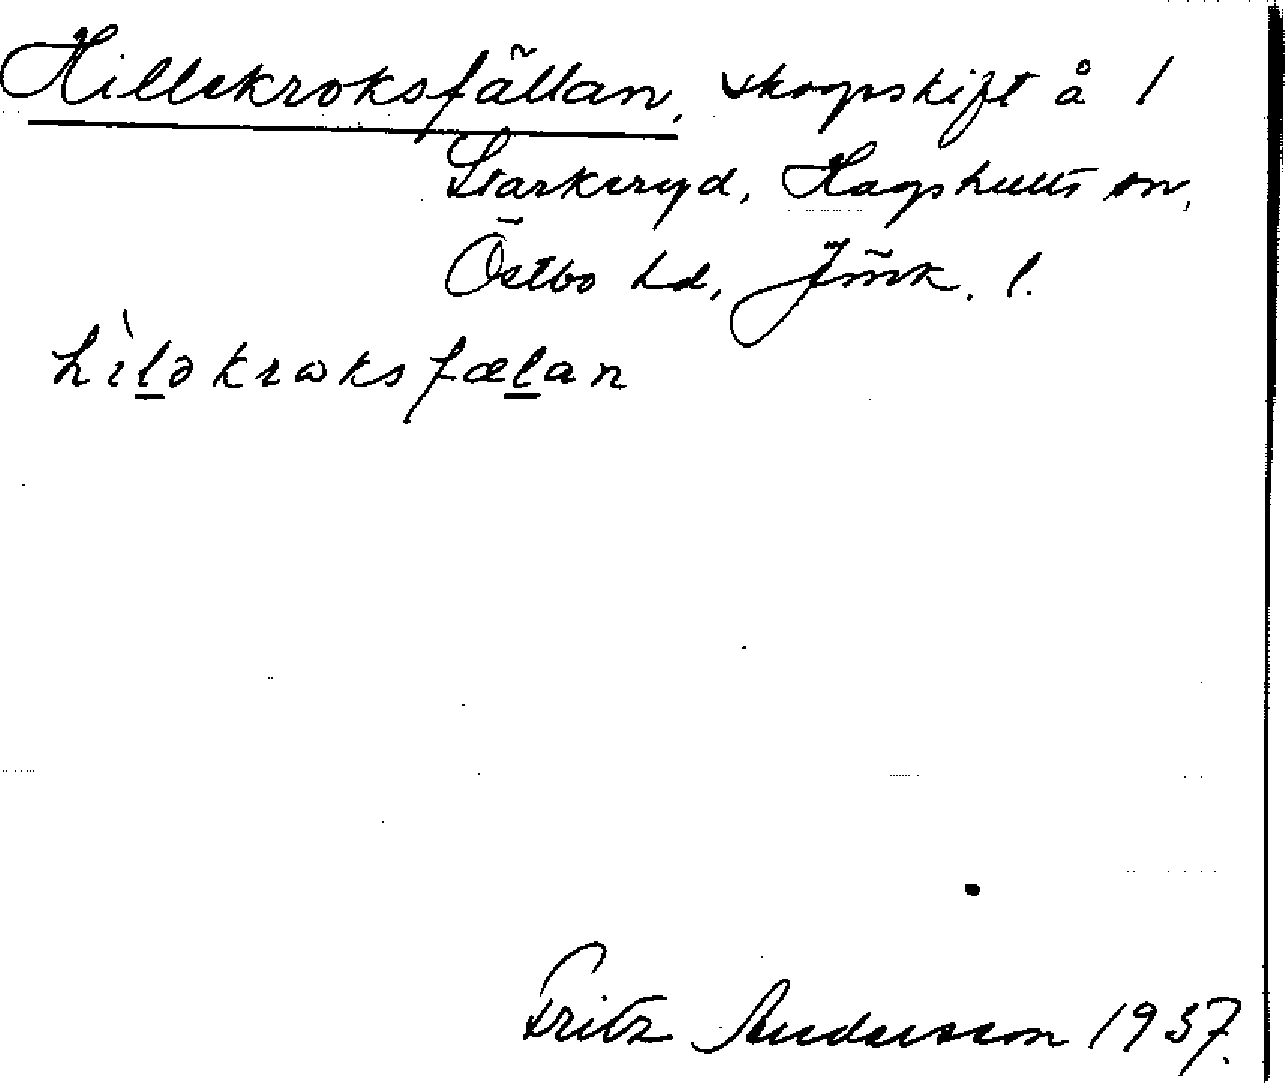 Hillekroksfällan, skogsskift å /
Starkeryd, Hagshults sn,
Östbo hd, Jönk. l.
hìləkrωksfælan
Fritz Andersson 1937.